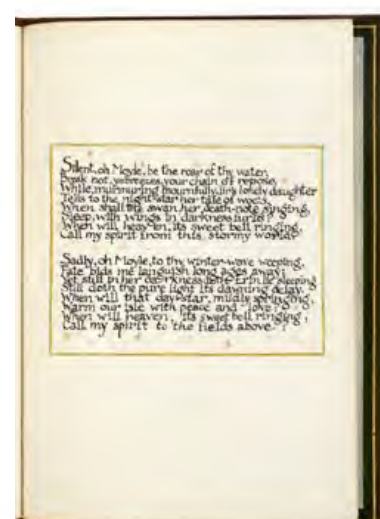 Silent, oh Moyle, be the roar of thy water,
Break not, ye breezes, your chain of repose,
While, murmuring mournfully, Lir's lonely daughter
Tells to the night-star her tale of woes.
When shall the swan, her death-note singing,
Sleep, with wings in darkness furl'd?
When will heaven, its sweet bell ringing,
Call my spirit from this stormy world?
Sadly, oh Moyle, to thy winter-wave weeping,
Fate bids me languish long ages away;
Yet still in her darkness doth Erin lie sleeping
Still doth the pure light its dawning delay.
When will that day-star, mildly springing,
Warm our isle with peace and love?
When will heaven, its sweet bell ringing,
Call my spirit to the fields above?